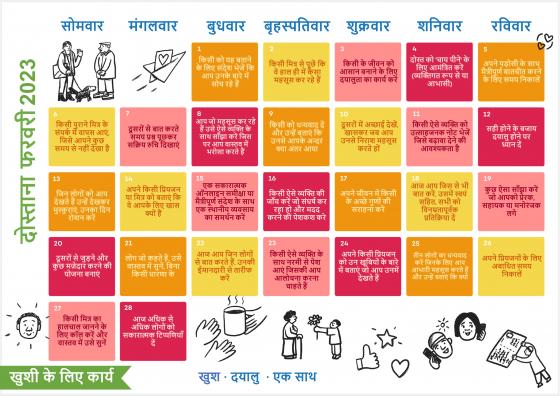 सोमवार मंगलवार बुधवार बृहस्पतिवार शुक्रवार शनिवार रविवार
दोस्ताना फरवरी 2023
1
किसी को यह बताने
के लिए संदेश भेजें कि
आप उनके बारे में
सोच रहे हैं
2
किसी मित्र से पूछें कि
वे हाल ही में कैसा
महसूस कर रहे हैं
3
किसी के जीवन को
आसान बनाने के लिए
दयालुता का कार्य करें
4
दोस्त को 'चाय पीने' के
लिए आमंत्रित करें
(व्यक्तिगत रूप से या
आभासी)
5
अपने पड़ोसी के साथ
मैत्रीपूर्ण बातचीत करने
के लिए समय निकालें
6
किसी पुराने मित्र के
संपर्क में वापस आएं,
जिसे आपने कुछ
समय से नहीं देखा है
7
दूसरों से बात करते
समय प्रश्न पूछकर
सक्रिय रुचि दिखाएं
8
आप जो महसूस कर रहे
हैं उसे ऐसे व्यक्ति के
साथ साझा करें जिस
पर आप वास्तव में
भरोसा करते हैं
9
किसी को धन्यवाद दें
और उन्हें बताएं कि
उनसे आपके अन्दर
क्या अंतर आया
10
दूसरों में अच्छाई देखें,
खासकर जब आप
उनसे निराश महसूस
करते हों
11
किसी ऐसे व्यक्ति को
उत्साहजनक नोट भेजें
जिसे बढ़ावा देने की
आवश्यकता है
12
सही होने के बजाय
दयालु होने पर
ध्यान दें
13
जिन लोगों को आप
देखते हैं उन्हें देखकर
मुस्कुराएं, उनका दिन
रोशन करें
14
अपने किसी प्रियजन
या मित्र को बताएं कि
वे आपके लिए खास
क्यों हैं
15
एक सकारात्मक
ऑनलाइन समीक्षा या
मैत्रीपूर्ण संदेश के साथ
एक स्थानीय व्यवसाय
का समर्थन करें
16
किसी ऐसे व्यक्ति की
जाँच करें जो संघर्ष कर
रहा हो और मदद
करने की पेशकश करें
17
अपने जीवन में किसी
के अच्छे गुणों की
सराहना करें
18
आज आप जिस से भी
बात करें, उसमें स्वयं
सहित, सभी को
विनम्रतापूर्वक
प्रतिक्रिया दें
19
कुछ ऐसा साझा करें
जो आपको प्रेरक,
सहायक या मनोरंजक
लगे
20
दूसरों से जुड़ने और
कुछ मजेदार करने की
योजना बनाएं
21
लोग जो कहते हैं, उसे
वास्तव में सुनें, बिना
किसी धारणा के
22
आज आप जिन लोगों
से बात करते हैं, उनकी
ईमानदारी से तारीफ
करें
23
किसी ऐसे व्यक्ति के
साथ नरमी से पेश
आएं जिसकी आप
आलोचना करना
चाहते हैं
24
अपने किसी प्रियजन
को उन खूबियों के बारे
में बताएं जो आप उनमें
देखते हैं
25
तीन लोगों का धन्यवाद
करें जिनके लिए आप
आभारी महसूस करते हैं
और उन्हें बताएं कि क्यों
26
अपने प्रियजनों के लिए
अबाधित समय
निकालें
27
किसी मित्र का
हालचाल जानने के
लिए कॉल करें और
वास्तव में उसे सुनें
28
आज अधिक से
अधिक लोगों को
सकारात्मक टिप्पणियाँ
दें
खुशी के लिए कार्य
खुश · दयालु · एक साथ